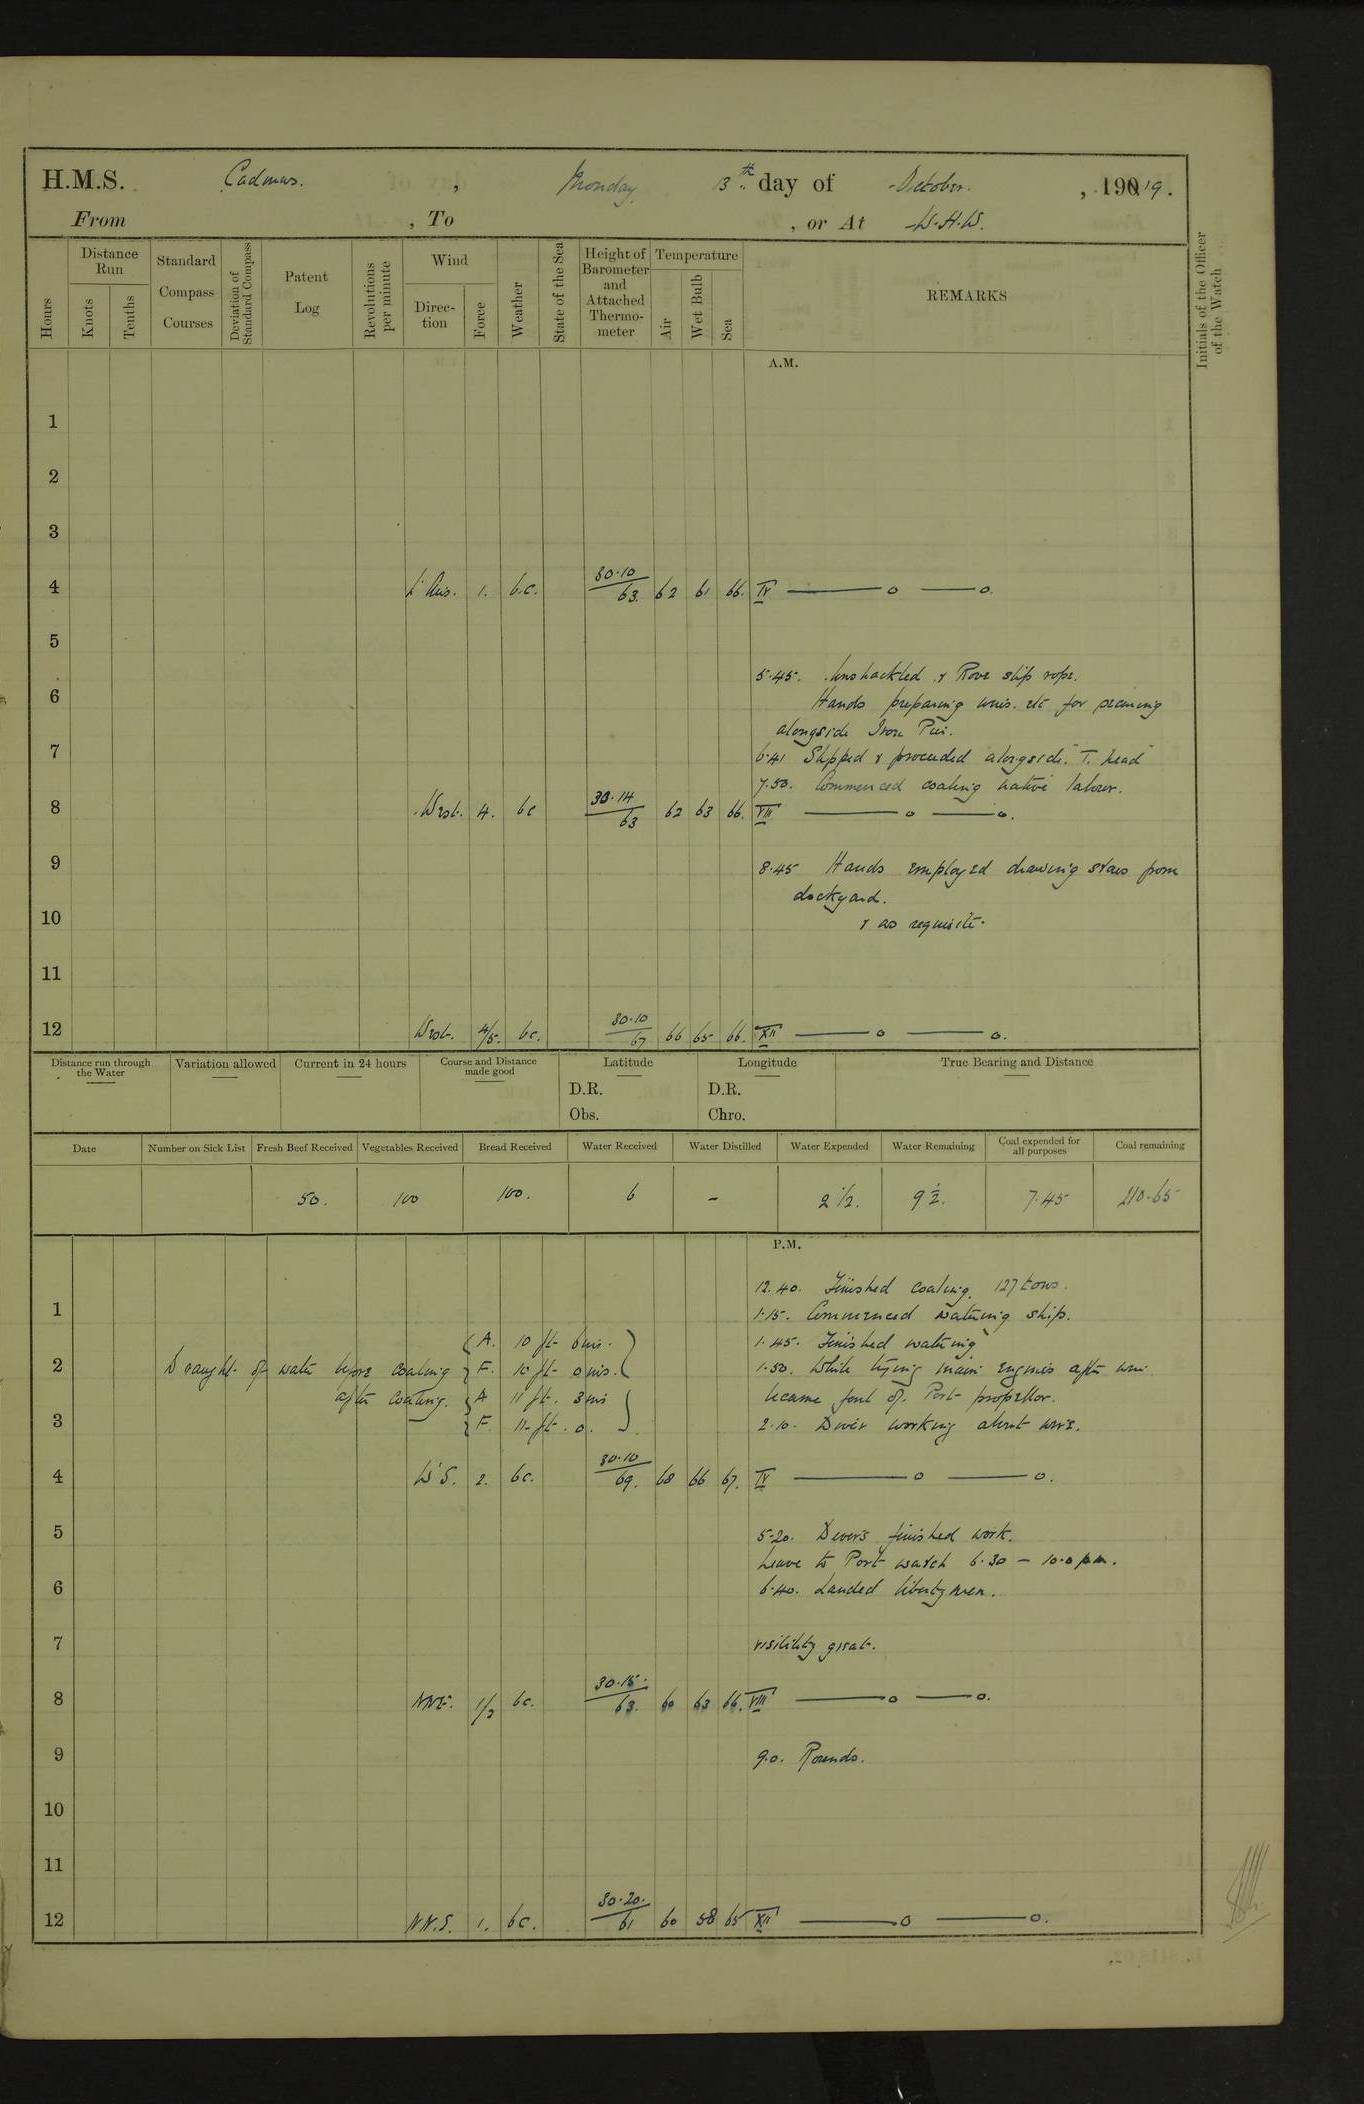 H.M.S. Cadmus. , Monday 13th day of October. , 1919.
From , To , or At W.H.W.
Hours
Distance Run
Knots
Tenths
Standard Compass Courses
Deviation of Standard Compass
Patent Log
Revolutions per minute
Wind
Direction
Force
Weather
State of the Sea
Height of Barometer and Attached Thermometer
Temperature
Air
Wet Bulb
Sea
REMARKS
Initials of the Officer of the Watch
A.M.
1
2
3
4 1. b.c. 30.10 63. 62 61 66. IV
5
5.45. Unshackled & Rove slip rope.
6 Hands preparing wires. etc for securing
alongside Iron Pier.
7 6.41 Slipped & proceeded alongside "T. head"
7.50. Commenced coaling native labour.
8 West. 4. bc 30.14 63 62 63 66. VIII
9 8.45 Hands employed drawing stores from
dockyard.
10 & as requisite.
11
12 West. 4/5. bc. 30.10 67 66 65 66. XII
Distance run through the Water
Variation allowed
Current in 24 hours
Course and Distance made good
Latitude
D.R.
Obs.
Longitude
D.R.
Chro.
True Bearing and Distance
Date Number on Sick List Fresh Beef Received Vegetables Received Bread Received Water Received Water Distilled Water Expended Water Remaining Coal expended for all purposes Coal remaining
50. 100 100. 6 - 2 1/2. 9 1/2. 7.45 210.65
P.M.
12.40. Finished coaling. 127 tons.
1 1.15. Commenced watering ship.
A. 10 ft 6 ins. 1.45. Finished watering
2 Draught of water before coaling F. 10 ft 0 ins. 1.50. While trying main engines after wire
after coaling. A 11 ft. 3 ins became foul of Port propellor.
3 F. 11 ft. 0. 2.10. Diver working about wire.
4 2. bc. 30.10 69. 68 66 67. IV
5 5.20. Divers finished work.
Leave to Port watch 6.30 - 10.0 pm.
6 6.40. Landed libertymen.
7 visibility great.
8 NNE. 1/2 bc. 30.15. 63. 60 63 66. VIII
9 9.0. Rounds.
10
11
12 1. bc. 30.20. 61 60 58 65 XII